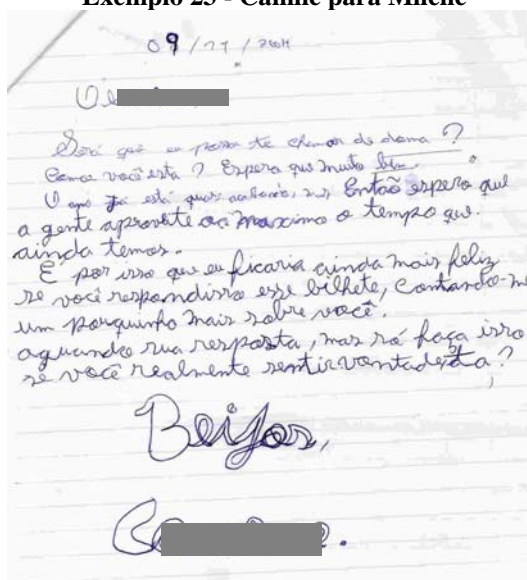 Exemplo 25 - Camile para Milene
09/11/2004
Oi
Será que eu posso te chamar de dama?
Como você esta? Espero que muito bem.
O ano já está quas acabando, Então espero que
a gente aproveite ao maximo o tempo que
ainda temos.
É por isso que eu ficaria ainda mais feliz
se você respondisse esse bilhete, contando-m
um porquinho mais sobre você.
aguando sua resposta, mas só faça isso
se você realmente sentir vontade, ta?
Beijos,